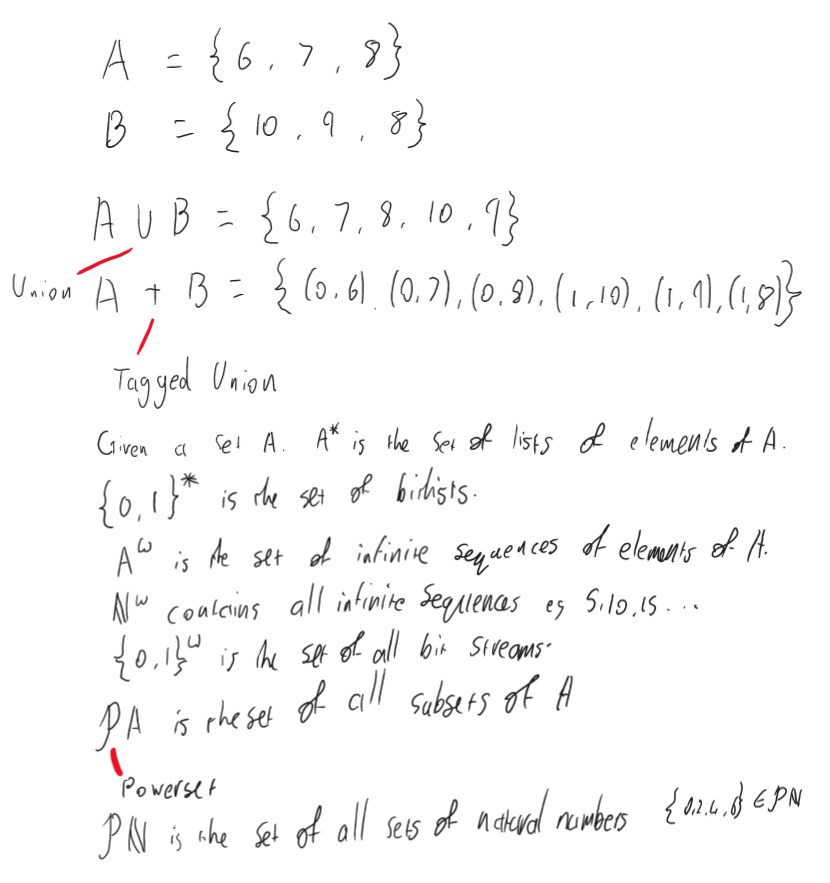 A = {6, 7, 8}
B = {10, 9, 8}
A ∪ B = {6, 7, 8, 10, 9}
Union A + B = {(0,6), (0,7), (0,8), (1,10), (1,9), (1,8)}
Tagged Union
Given a set A. A* is the set of lists of elements of A.
{0,1}* is the set of bitlists.
A^ω is the set of infinite sequences of elements of A.
N^ω contains all infinite sequences eg 5,10,15...
{0,1}^ω is the set of all bit streams.
PA is the set of all subsets of A
Powerset
PN is the set of all sets of natural numbers {0,2,4,6} ∈ PN